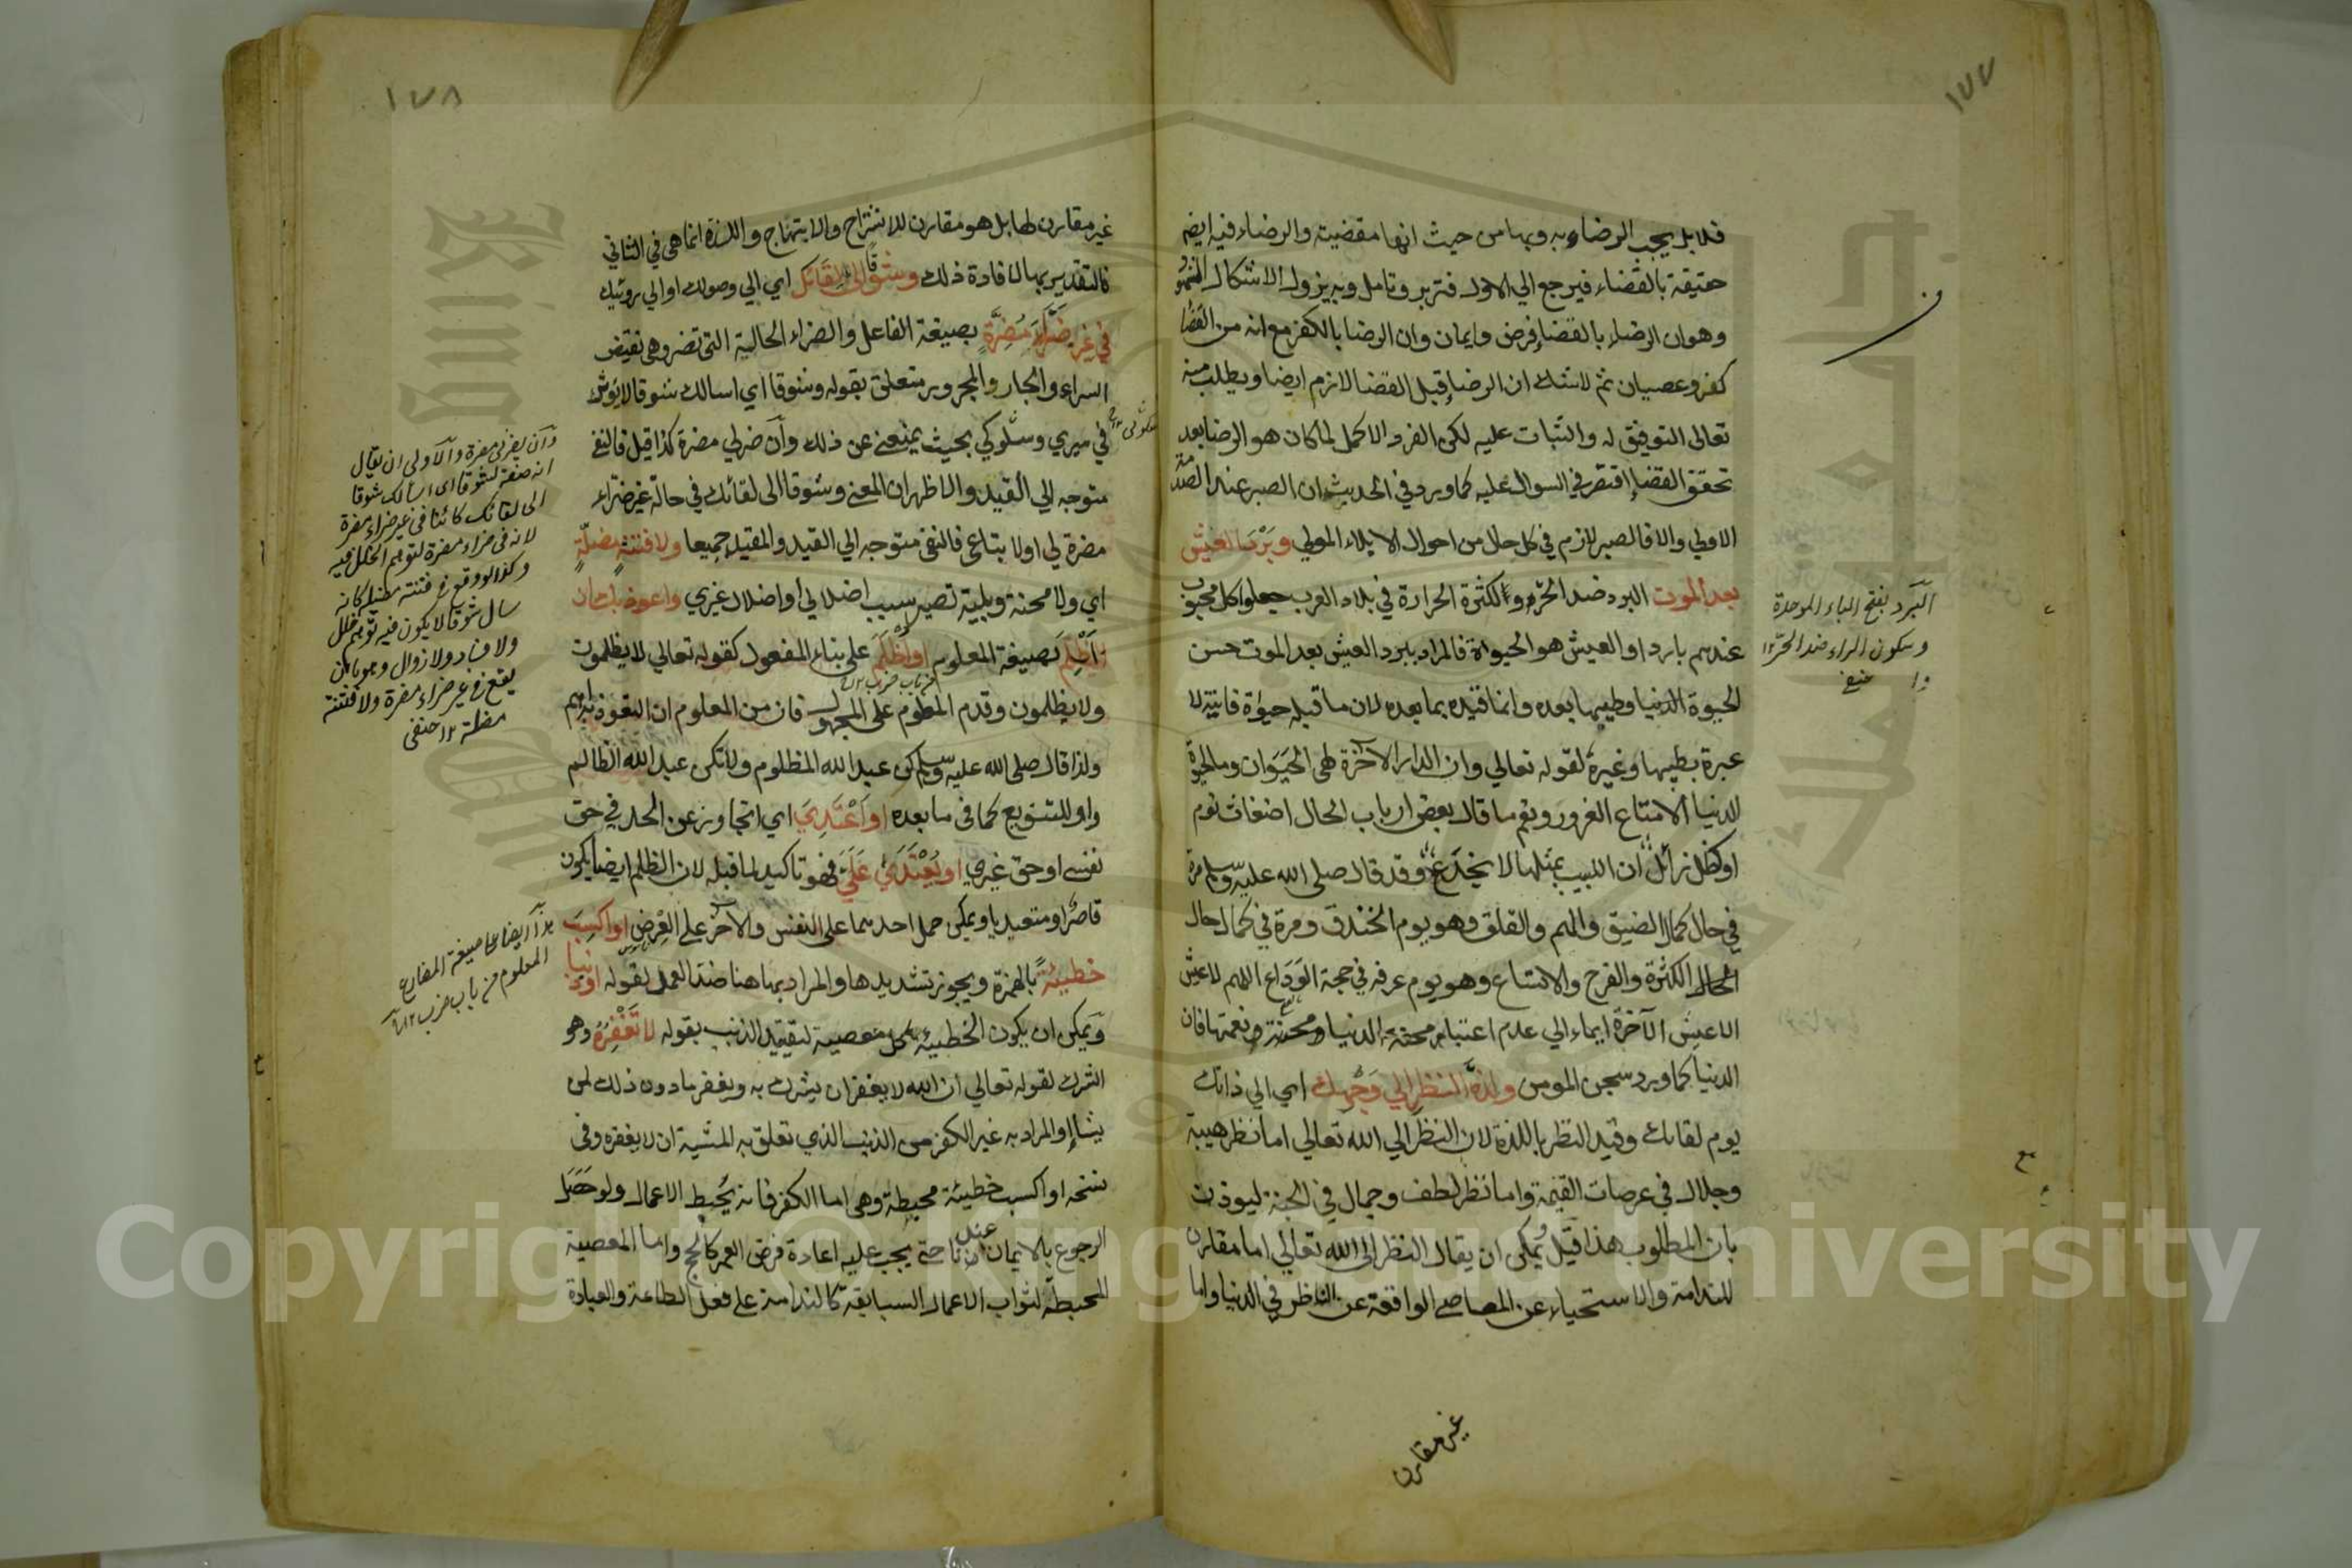 ١٧٧
فلا بل يجب الرضاء به وبها من حيث انها مقضية والرضاء فيه ايضم
حقيقة بالقضاء فيرجع الي الاول فتدبر وتامل وبه يزول الاشكال المشهور
وهو ان الرضاء بالقضاء فرض وايمان وان الرضا بالكفر مع انه من القضا
كفر وعصيان ثم لا شك ان الرضا قبل القضا لازم ايضا ويطلب منه
تعالى التوفيق له والثبات عليه لكن الفرد الاكمل لما كان هو الرضا بعد
تحقق القضا اقتصر في السوال عليه كما ورد في الحديث ان الصبر عند الصدمة
الاولي والا فالصبر لازم في كل حال من احوال الابلاء المولي وبرد العيش
بعد الموت البرد ضد الحر ولكثرة الحرارة في بلاد العرب جعلوا كل محبوب
عندهم باردا والعيش هو الحيواة فالمراد ببرد العيش بعد الموت حسن
الحيوة الدنيا وطيبها بعده وانما قيده بما بعده لان ما قبله حيوة فانية لا
عبرة بطيبها وغيره لقوله تعالي وان الدار الآخرة لهي الحيوان وما الحيوة
الدنيا الا متاع الغرور ونعم ما قال بعض ارباب الحال اضغاث نوم
او كظل زائل ان اللبيب بمثلها لا يخدع وقد قال صلى الله عليه وسلم مرة
في حال كمال الضيق والهم والقلق وهو يوم الخندق ومرة في كمال حال
الكثرة والفرح والاتساع وهو يوم عرفه في حجة الوداع اللهم لا عيش
الا عيش الآخرة ايماء الي عدم اعتبار محنة الدنيا ومحنة ونعمتها فان
الدنيا كما ورد سجن المومن ولذة النظر الي وجهك اي الي ذاتك
يوم لقائك وقيد النظر باللذة لان النظر الي الله تعالي اما نظر هيبة
وجلال في عرصات القيمة واما نظر لطف وجمال في الجنة ليوذن
بان المطلوب هذا قيل يمكن ان يقال النظر الى الله تعالي اما مقارن
للندامة والاستحياء عن المعاصي الواقعة عن الناظر في الدنيا واما
غير مقارن
البرد بفتح الباء الموحدة
وسكون الراء ضد الحر ١٢
حنيفي
١٧٨
غير مقارن لها بل هو مقارن للانشراح والابتهاج واللذة انما هي في الثاني
فالتقدير بها لافادة ذلك وشوقا الى لقائك اي الي وصولك او الي رويتك
في غير ضراء مضرة بصيغة الفاعل والضراء الحالية التي تضر وهي نقيض
السراء والجار والمجرور متعلق بقوله وشوقا اي اسالك شوقا لا يوثر
في سيري وسلوكي بحيث يمنعني عن ذلك وان ضر لي مضرة كذا قيل فالنفي
متوجه الي القيد والاظهر ان المعني وشوقا الى لقائك في حالة غير ضراء
مضرة لي اولا بتاع فالنفي متوجه الي القيد والمقيد جميعا ولا فتنة مضلة
اي ولا محنة وبلية تصير سبب اضلالي او اضلال غيري واعوذ بك ان
اظلم بصيغة المعلوم او اظلم على بناء المفعول كقوله تعالي لا يظلمون
ولا يظلمون وقدم المعلوم على المجهول فان من المعلوم ان التعوذ منه اهم
ولذا قال صلى الله عليه وسلم كن عبد الله المظلوم ولا تكن عبد الله الظالم
واو للتنويع كما في ما بعده او اعتدي اي اتجاوز عن الحد في حق
نفسي او حق غيري او يعتدي علي فهو تاكيد لما قبله لان الظلم ايضا يكون
قاصرا ومتعديا ويمكن حمل احدهما على النفس والآخر على العرض او اكسب
خطيئة بالهمزة ويجوز تشديدها والمراد بها هنا ضد العمد لقوله او ذنبا
ويمكن ان يكون الخطيئة كل معصية لتقييد الذنب بقوله لا تغفره وهو
الشرك لقوله تعالي ان الله لا يغفر ان يشرك به ويغفر ما دون ذلك لمن
يشاء او المراد به غير الكفر من الذنب الذي تعلق به المشية ان لا يغفره وفي
نسخه او اكسب خطيئة محيطة وهي اما الكفر فانه يحبط الاعمال ولو حصل
الرجوع بالايمان عندنا حتي يجب عليه اعادة فرض العمر كالحج واما المعصية
المحبطة لثواب الاعمال السابقة كالندامة على فعل الطاعة والعبادة
من باب ضرب ١٢
والاولى ان يقال
انه صفة لشوقا اى اسالك شوقا
الى لقائك كائنا في غير ضراء مضرة
لانه في ضراء مضرة لتوهم الخلل فيه
وكذا لو وقع في فتنة مضلة كانه
سال شوقا لا يكون فيه توهم خلل
ولا فساد ولا زوال وهو بان
يقع في غير ضراء مضرة ولا فتنة
مضلة ١٢ حنفي
هذا ايضا على صيغة المضارع
المعلوم من باب ضرب ١٢
Copyright © King Saud University